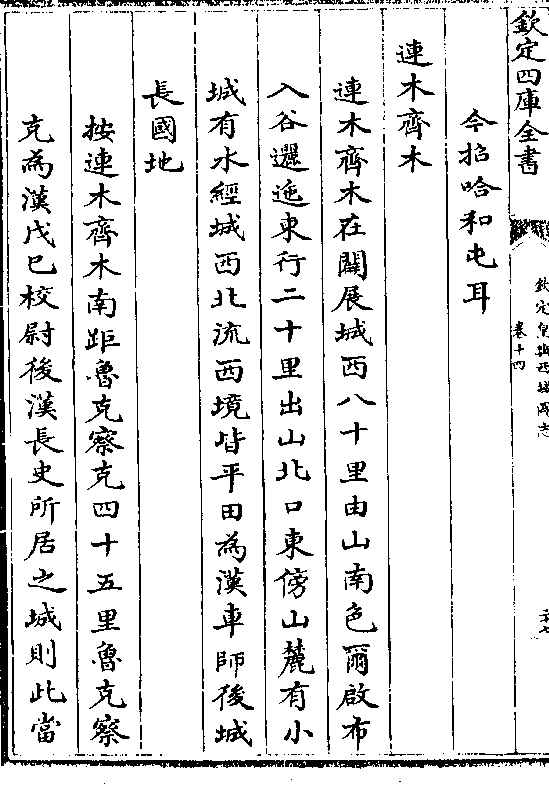 欽定四庫全書
欽定皇輿西域圖志
卷十四
今招哈和屯耳
連木齊木
連木齊木在闢展城西八十里由山南色爾啟布
入谷邐迤東行二十里出山北口東傍山麓有小
城有水經城西北流西境皆平田為漢車師後城
長國地
按連木齊木南距魯克察克四十五里魯克察
克為漢戊巳校尉後漢長史所居之城則此當